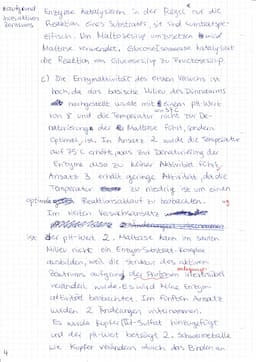 Enzyme katalysieren in der Regel nur die
Reaktion eines Substrats, ist sind substratspe-
zifisch. Um Maltosesirup umzusetzen wird
Maltase verwendet. Glucoseisomerase katalysiert
die Reaktion von Glucosesirup zu Fructosesirup.
c) Die Enzymaktivität des ersten Versuchs ist
hoch, da das basische Milieu des Dünndarms
nachgestellt wurde mit einem pH-Wert
von 8 und die Temperatur nicht zur De-
naturierung der Maltase führt, sondern
optimal ist. Im Ansatz 2 wurde die Temperatur
auf 75°C erhöht, was zur Denaturierung der
Enzyme also zu keiner Aktivität führt.
Ansatz 3 enthält geringe Aktivität, da die
Temperatur zu niedrig ist um einen
optimalen Reaktionsablauf zu beobachten.
Im vierten Versuchsansatz
ist der pH-Wert 2. Maltase kann im sauren
Milieu nicht ein Enzym-Substrat-Komplex
ausbilden, weil die Struktur des aktiven
Zentrums aufgrund der Protonen
verändert wurde. Es wird keine Enzym-
aktivität beobachtet. Im fünften Ansatz
wurden 2 Änderungen unternommen.
Es wurde Kupfer(II)-Sulfat hinzugefügt
und der pH-Wert beträgt 2. Schwermetalle
wie Kupfer verändern durch das Binden an
4